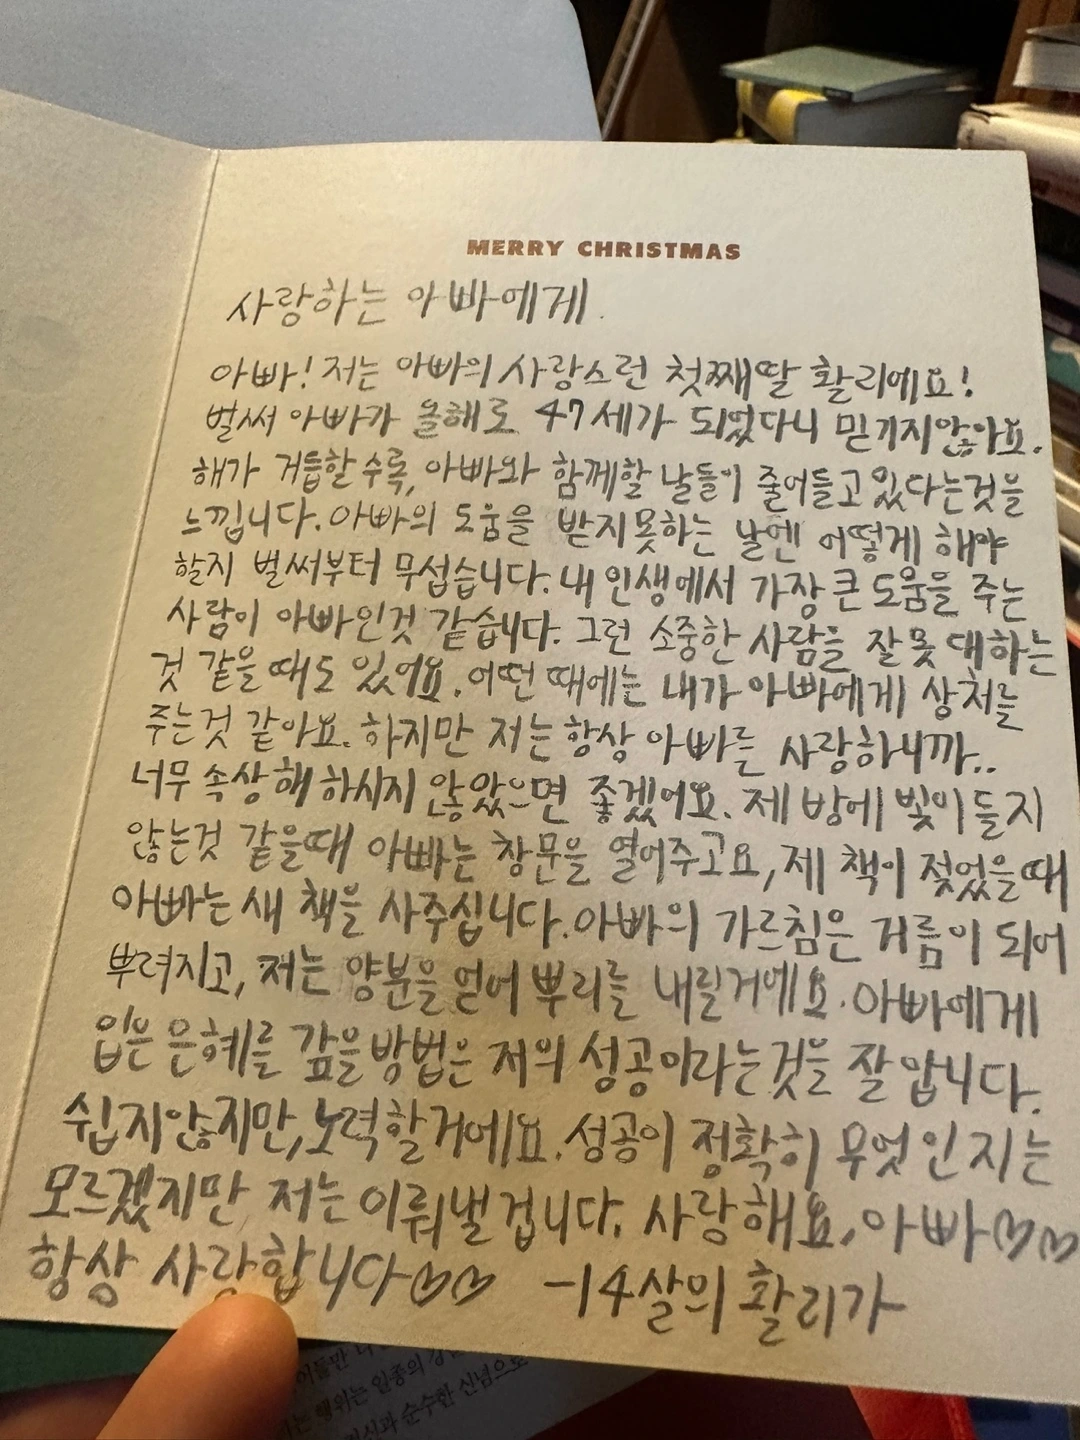 MERRY CHRISTMAS
사랑하는 아빠에게.
아빠! 저는 아빠의 사랑스런 첫째딸 활리에요!
벌써 아빠가 올해로 47세가 되었다니 믿기지않아요.
해가 거듭할수록, 아빠와 함께할 날들이 줄어들고있다는것을
느낍니다. 아빠의 도움을 받지못하는 날엔 어떻게 해야
할지 벌써부터 무섭습니다. 내 인생에서 가장 큰 도움을 주는
사람이 아빠인것 같습니다. 그런 소중한 사람을 잘못 대하는
것 같을 때도 있어요. 어떤 때에는 내가 아빠에게 상처를
주는것 같아요. 하지만 저는 항상 아빠를 사랑하니까..
너무 속상해 하시지 않았으면 좋겠어요. 제 방에 빛이 들지
않는것 같을때 아빠는 창문을 열어주고요, 제 책이 젖었을때
아빠는 새 책을 사주십니다. 아빠의 가르침은 거름이 되어
뿌려지고, 저는 양분을 얻어 뿌리를 내릴거에요. 아빠에게
입은 은혜를 갚을방법은 저의 성공이라는것을 잘 압니다.
쉽지않지만, 노력할거에요. 성공이 정확히 무엇인지는
모르겠지만 저는 이뤄낼겁니다. 사랑해요, 아빠♡♡
항상 사랑합니다♡♡ -14살의 활리가
이들만
행위는 일종의
순수한 신념으로